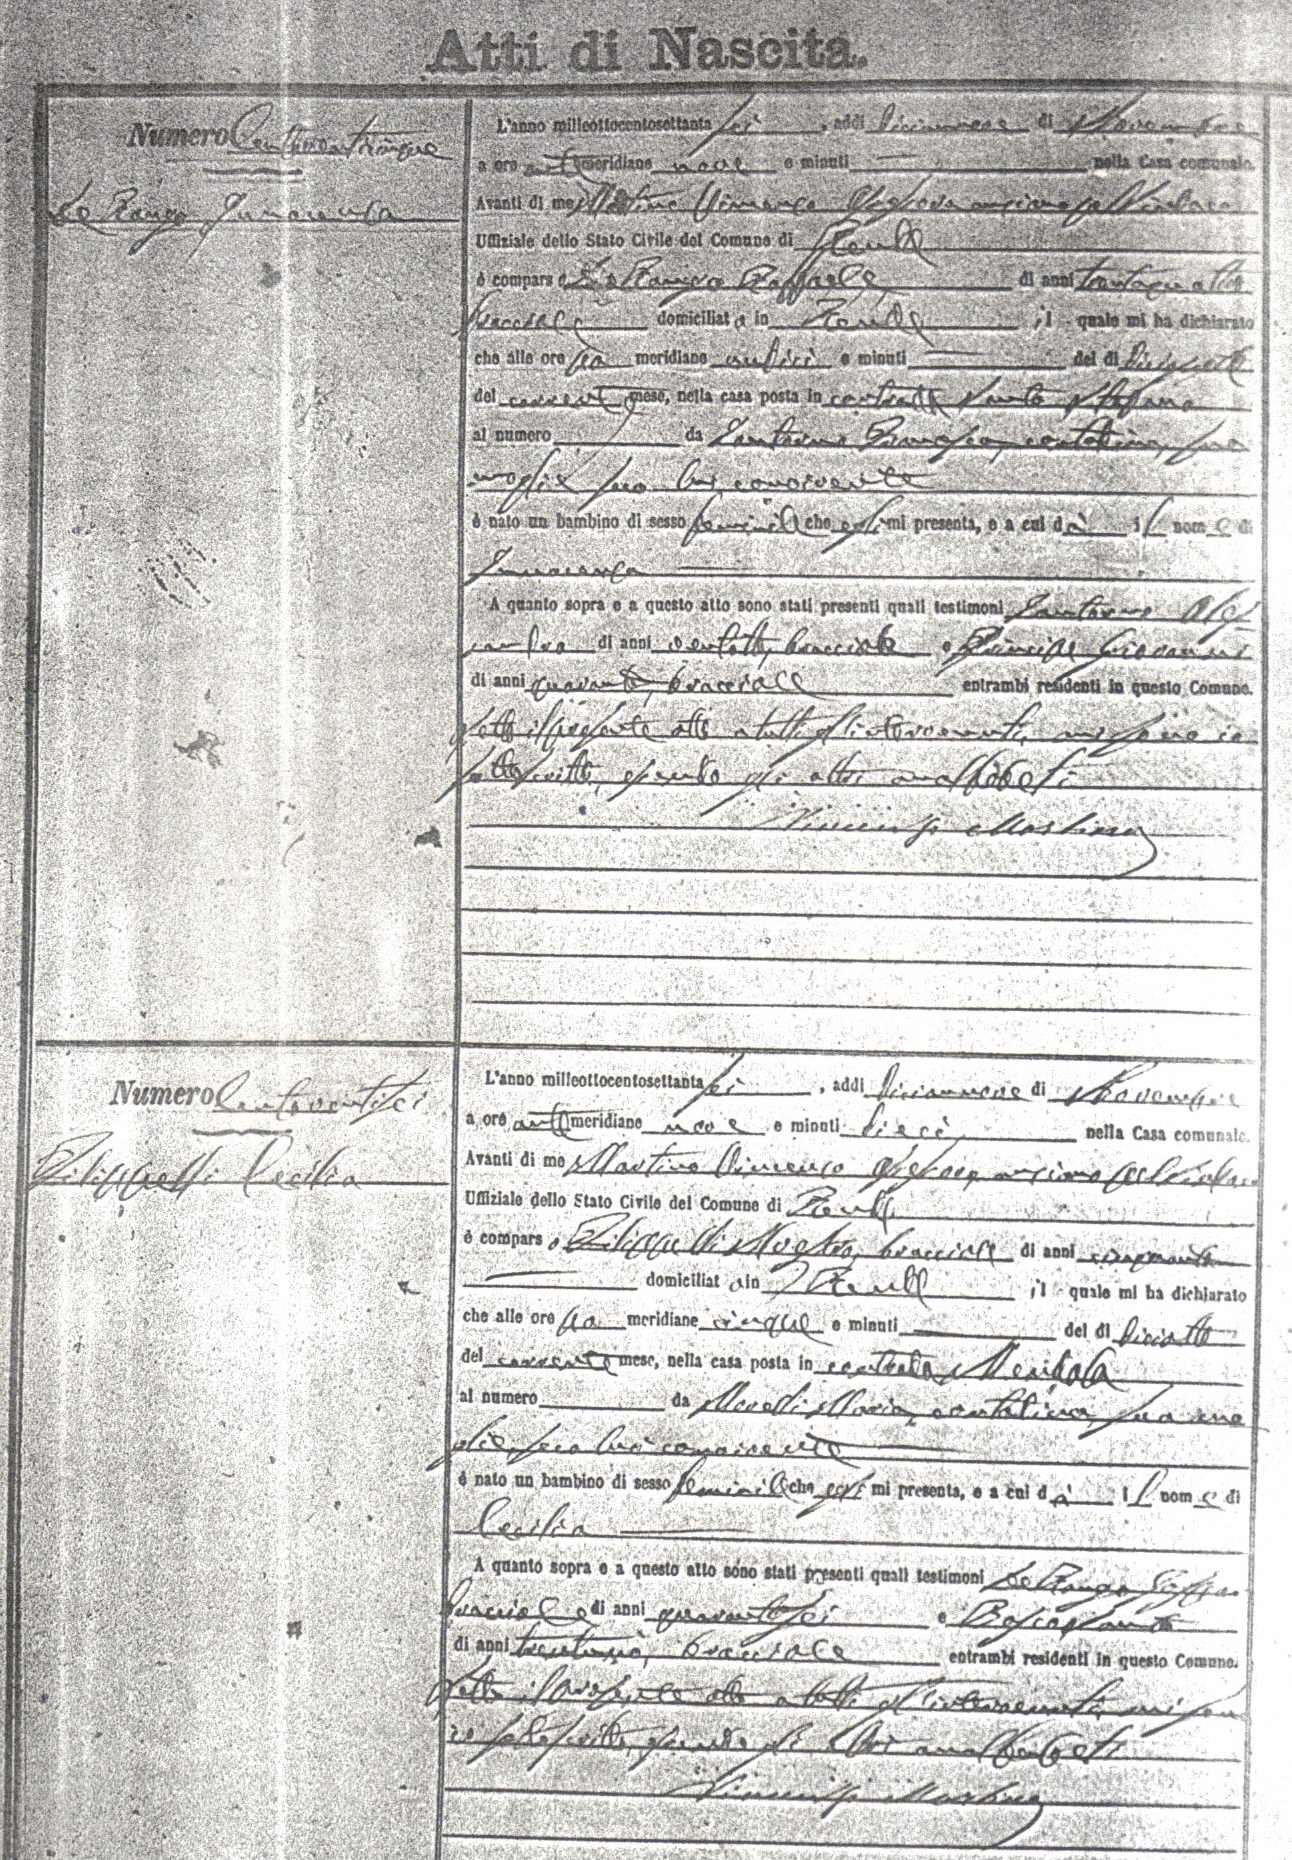 Atti di Nascita.
Numero Centoventicinque
De Rango Innocenza
L'anno millottocentosettanta sei, addì diciannove di Novembre
a ore antimeridiane nove e minuti nella Casa comunale.
Avanti di me Martino Vincenzo Assessore anziano pel Sindaco
Uffiziale dello Stato Civile del Comune di
è comparso De Rango Raffaele, di anni trentaquattro
bracciale domiciliato in il quale mi ha dichiarato
che alle ore po meridiane undici e minuti del dì
del corrente mese, nella casa posta in contrada Santo Stefano
al numero da contadina, sua
moglie seco lui convivente
è nato un bambino di sesso feminile che egli mi presenta, e a cui dà il nome di
Innocenza
A quanto sopra e a questo atto sono stati presenti quali testimoni
di anni bracciale e Giovanni
di anni quaranta, bracciale entrambi residenti in questo Comune.
Letto il presente atto a tutti gl'intervenuti, mi sono io
sottoscritto, essendo gli altri analfabeti
Vincenzo Martino
Numero Centoventisei
Filippelli Cecilia
L'anno millottocentosettanta sei, addì diciannove di Novembre
a ore antimeridiane nove e minuti dieci, nella Casa comunale.
Avanti di me Martino Vincenzo Assessore anziano pel Sindaco
Uffiziale dello Stato Civile del Comune di
è comparso Filippelli bracciale di anni cinquanta
domiciliato in il quale mi ha dichiarato
che alle ore po meridiane cinque e minuti del dì diciotto
del corrente mese, nella casa posta in contrada
al numero da Maria, contadina, sua mo
glie, seco lui convivente
è nato un bambino di sesso feminile che egli mi presenta, e a cui dà il nome di
Cecilia
A quanto sopra e a questo atto sono stati presenti quali testimoni De Rango
bracciale di anni quarantasei e
di anni trentatrè, bracciale entrambi residenti in questo Comune.
Letto il presente atto a tutti gl'intervenuti, mi son
io sottoscritto, essendo gli altri analfabeti
Vincenzo Martino